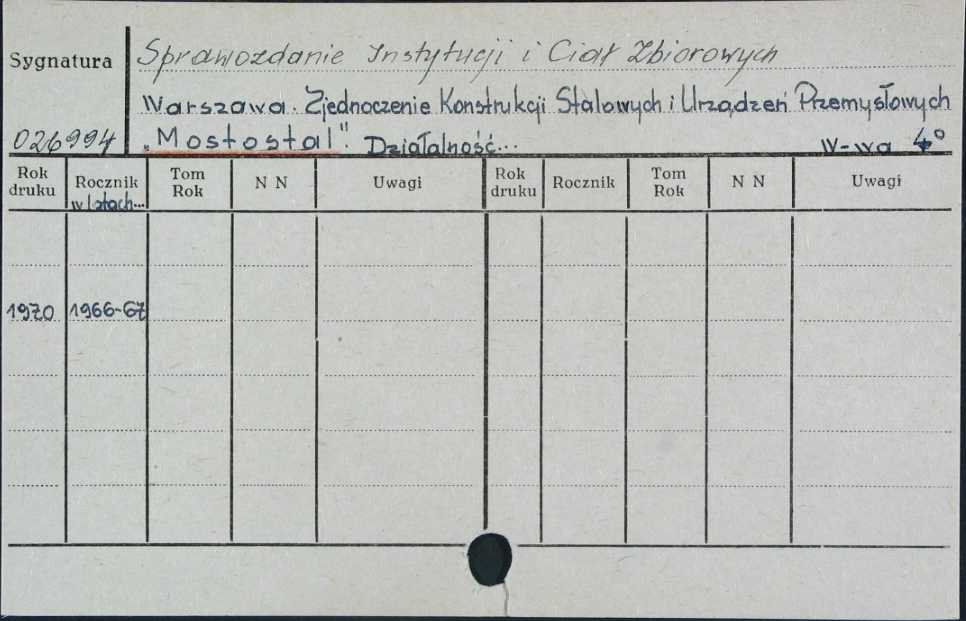 Sygnatura
Sprawozdanie Instytucji i Ciał Zbiorowych
Warszawa. Zjednoczenie Konstrukcji Stalowych i Urządzeń Przemysłowych
026994 „Mostostal". Działalność... W-wa 4°
Rok druku Rocznik w latach... Tom Rok N N Uwagi Rok druku Rocznik Tom Rok N N Uwagi
1970 1966-67